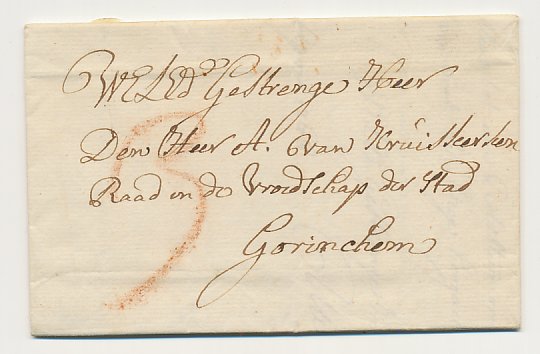 WELEd Gestrenge Heer
Den Heer A. van
Raad in de Vroedschap der Stad
Gorinchem
3